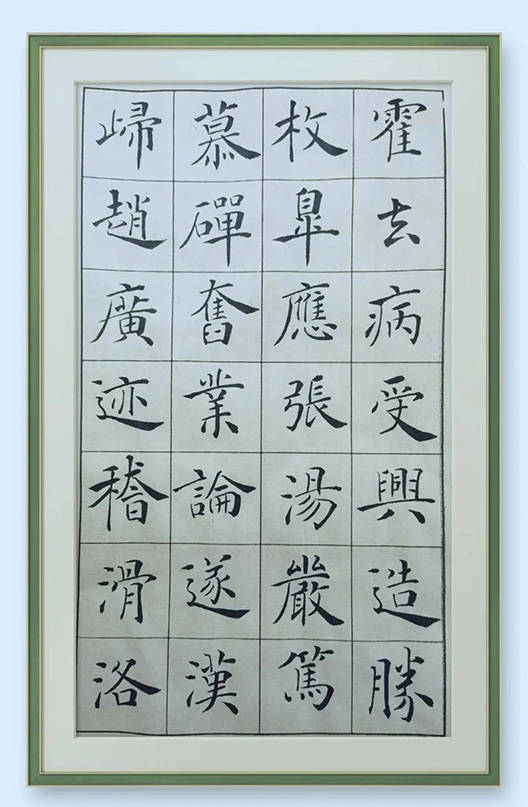 霍去病受興造勝
枚皐應張湯嚴篤
慕磾奮業論遂漢
㱕趙廣迹稽滑洛